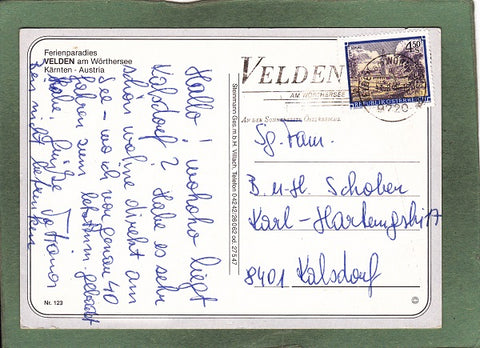 Ferienparadies
VELDEN am Wörthersee
Kärnten - Austria
Hallo! wohoho liegt
Kalsdorf? Habe es sehr
schön wohne direkt am
See - wo ich vor genau 40
Jahren zum
Habe! Grüße
bin nicht
Nr. 123
Steinmann Ges.m.b.H. Villach, Telefon 0 42 42/26 0 62 od. 27 5 47
VELDEN
AM WÖRTHERSEE
AN DER SONNENSEITE ÖSTERREICHS
4.50
REPUBLIK ÖSTERREICH
Sg. Fam.
B. u. H. Schober
8401 Kalsdorf